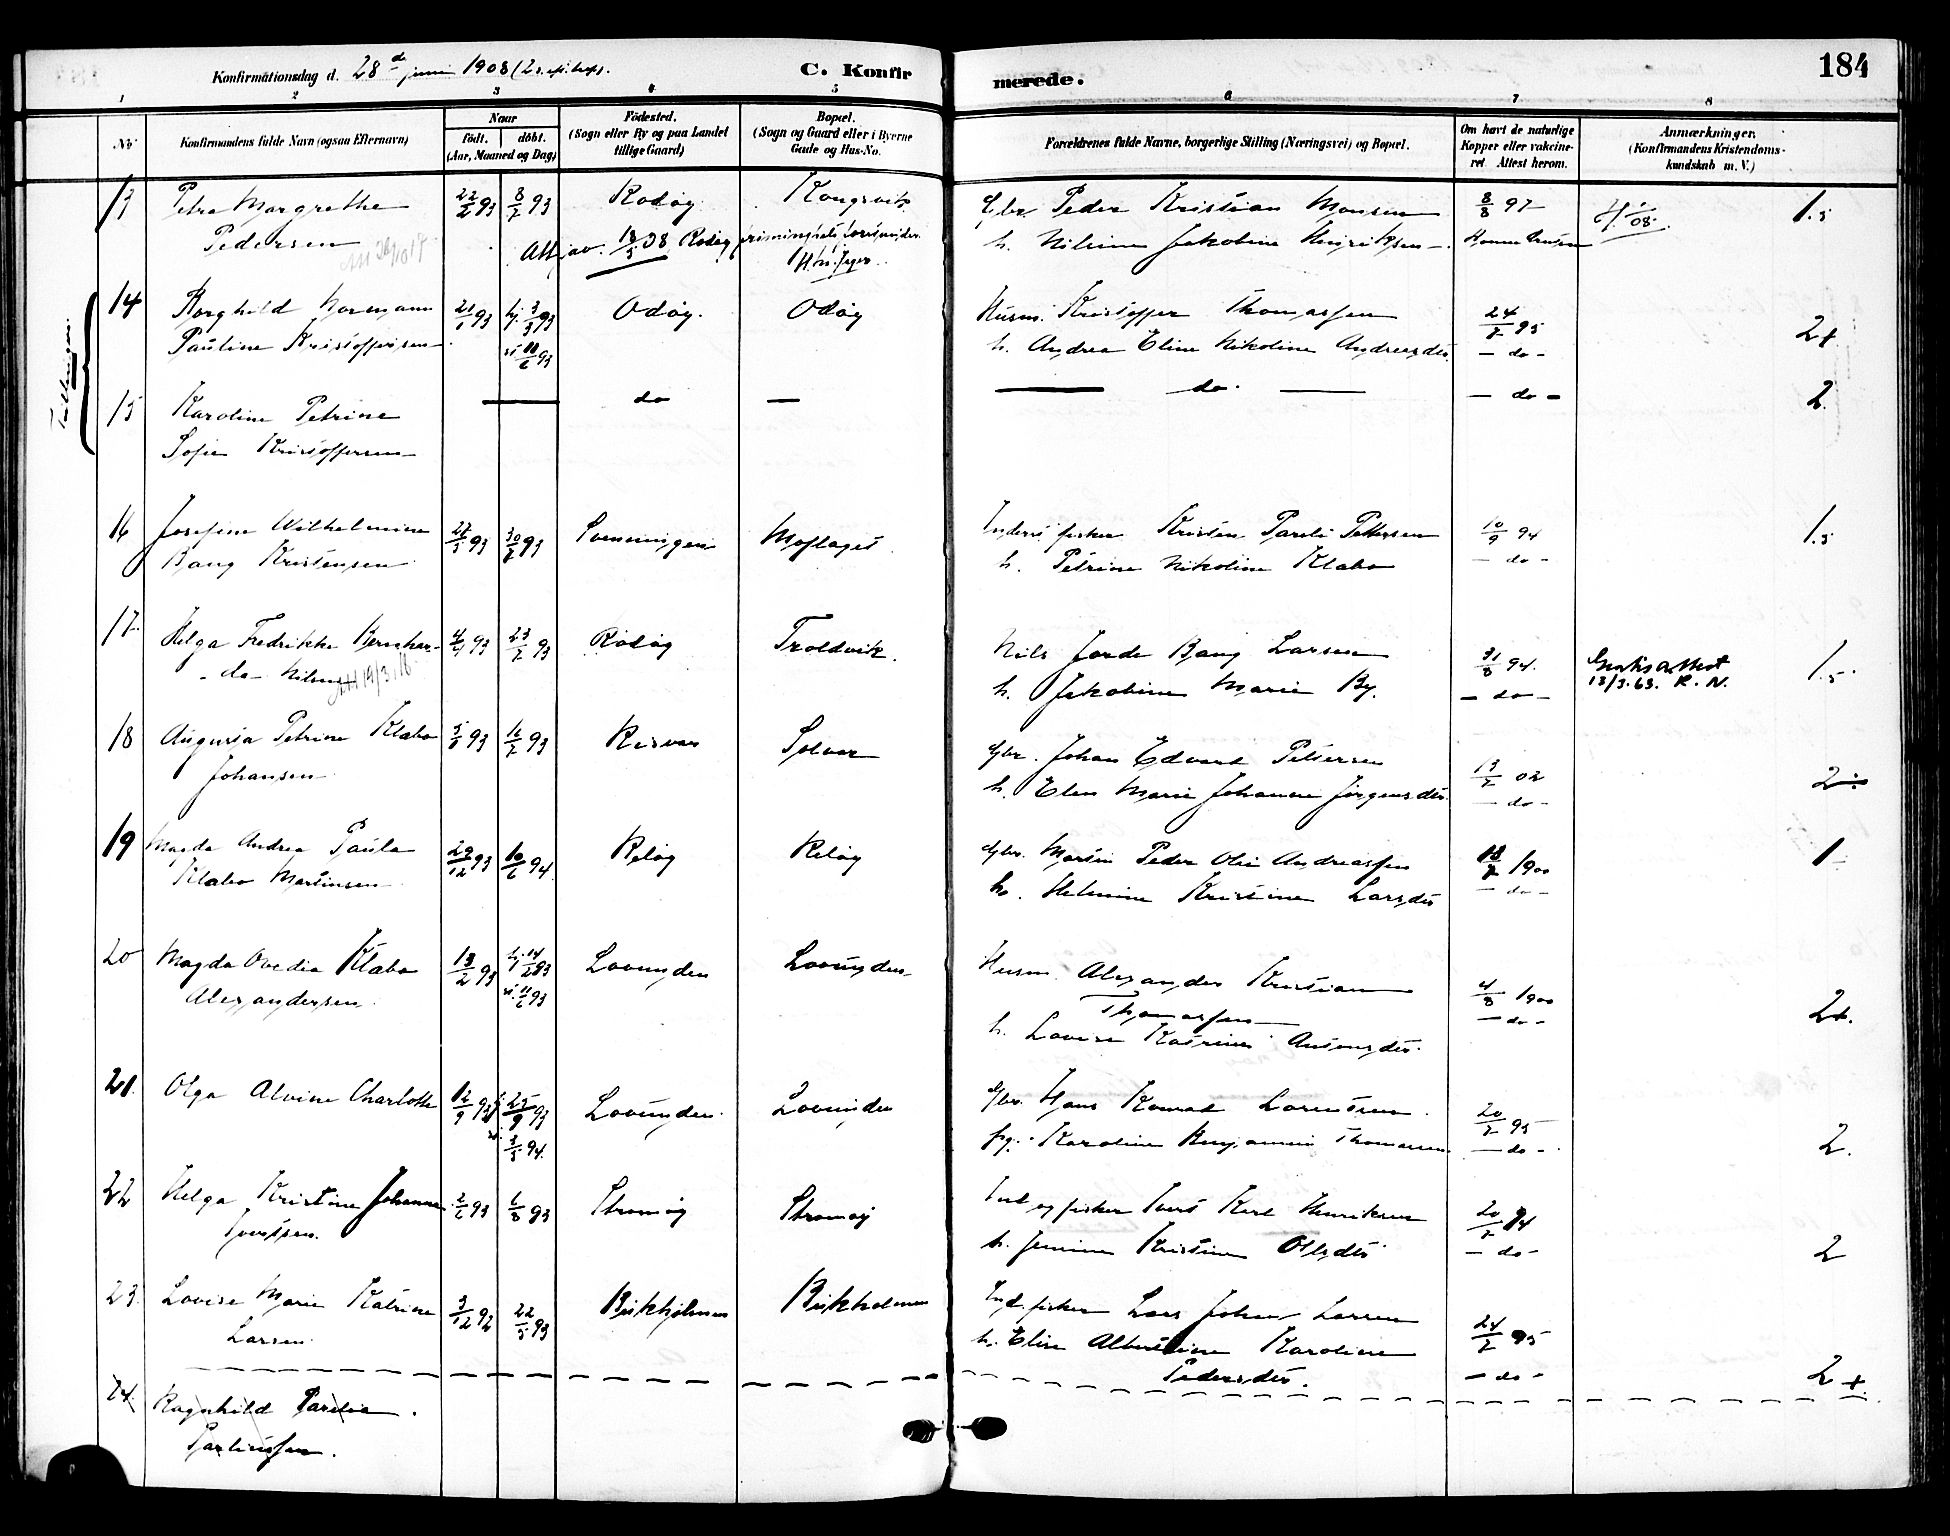 184
Konfirmationsdag d. 28d juni 1908
C. Konfirmerede.
1 2 3 4 5 6 7 8
No
Konfirmandens fulde Navn (ogsaa Efternavn)
Naar
født. døbt.
(Aar, Maaned og Dag)
Fødested.
(Sogn eller By og paa Landet
tillige Gaard)
Bopæl.
(Sogn og Gaard eller i Byerne
Gade og Hus-No.
Forældrenes fulde Navne, borgerlige Stilling (Næringsvei) og Bopæl.
Om havt de naturlige
Kopper eller vaccine-
ret Attest herom.
Anmærkninger.
(Konfirmandens Kristendoms-
kundskab m. V.)
13 Petra Margrethe 22/2 93 8/7 93 Rodøy Kongsvik Gbr. Peder Kristian Monsen 8/8 97 1.5
Pedersen Att. av. 18/5 08 Rodøy h. Hilmine Jakobine Henriksen
14 Borghild Normann 21/1 93 hj. 3/3 93 Odøy Odøy Husm. Kristoffer Thomassen 24/7 95
Pauline Kristoffersen st. 11/6 93 h. Andrea Eline Nikoline Andreasdtr. – do – 2+
15 Karoline Petrine — do — — do. — – do – 2
Sofie Kristoffersen
16 Josefine Wilhelmine 93 30/7 93 Svenningen Moflaget Inderst fisker Kristen Pareli Pettersen 10/9 94 1.5
Bang Kristensen h. Petrine Nikoline Klæbo – do –
17 Helga Fredrikke Bernhar- 4/4 93 23/7 93 Rødøy Troldvik Nils Jorde Bang Larsen 31/8 94. Gratis attest 1.5
- da Nilsen 19/3.16 h. Jakobine Marie By. – do – 13/3.63. R. N.
18 Augusta Petrine Klæbo 93 16/7 93 Risvær Selvær Gbr. Johan Edvard Pettersen 13/7 02
Johansen h. Elen Marie Johanne Jørgensdtr. – do – 2÷
19 Magda Andrea Paula 29/12 93 10/6 94 Reløy Reløy Gbr. Martin Peder Olai Andreassen 1900 1
Klæbo Martinsen h. Helmine Kristine Larsdtr – do –
20 Magda Ovedia Klæbo 13/2 93 hj. 14/2 93 Lovunden Lovunden Husm. Alexander Kristian 4/8 1900
Alexandersen st. 11/6 93 Thomassen – do – 2+.
h. Lovise Katrine Antonsdtr.
21. Olga Alvine Charlotte 12/9 93 25/9 93 Lovunden Lovunden Gbr. Hans Konrad Lorentsen 20/7 95
3/5 94. pg. Karoline Benjamine Thomassen – do – 2.
22 Helga Kristine Johanne 2/6 93 6/8 93 Strømøy Strømøy Ind. og fisker Ivert Karl Henriksen 20/7 94
Ivertsen. h. Jemine Kristine Olsdtr – do – 2
23. Lovise Marie Katrine 3/12 92 22/5 93 Birkholmen Birkholmen Ind. fisker Lars Johan Larsen 24/7 95
Larsen. h. Elise Albertine Karoline – do –
Pedersdtr. 2+
24. Ragnhild Parelia
Parliussen.